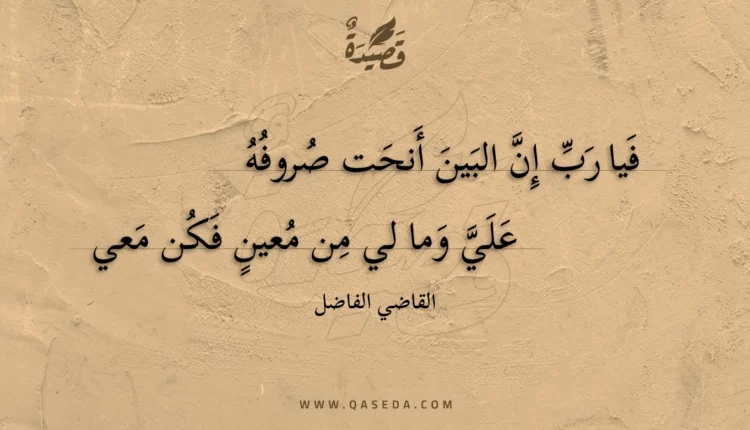 قَصِيْدَةٌ
فَيا رَبِّ إِنَّ البَينَ أَنحَت صُروفُهُ
عَلَيَّ وَما لي مِن مُعينٍ فَكُن مَعي
القاضي الفاضل
WWW.QASEDA.COM